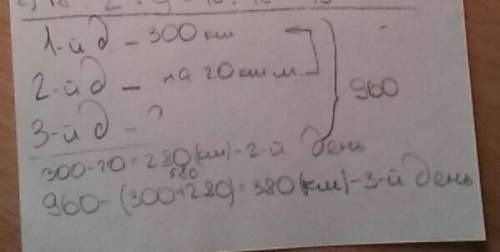 1-й д. - 300 км
2-й д - на 20 км м.
3-й д - ?
960
300-20=280(км)-2-й день
580
960-(300+280)=380(км)-3-й день